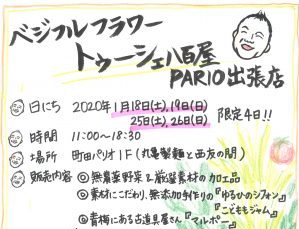 ベジフルフラワー
トゥーシェ八百屋
PARIO出張店
日にち 2020年1月18日(土),19日(日)
25日(土),26日(日) 限定4日!!
時間 11:00〜18:30
場所 町田パリオ1F(丸亀製麺と西友の間)
販売内容 ◎無農薬野菜&厳選素材の加工品
◎素材にこだわり、無添加手作りの『ゆるひのシフォン』
『こどももジャム』
◎青梅にある古道具屋さん『マルポー